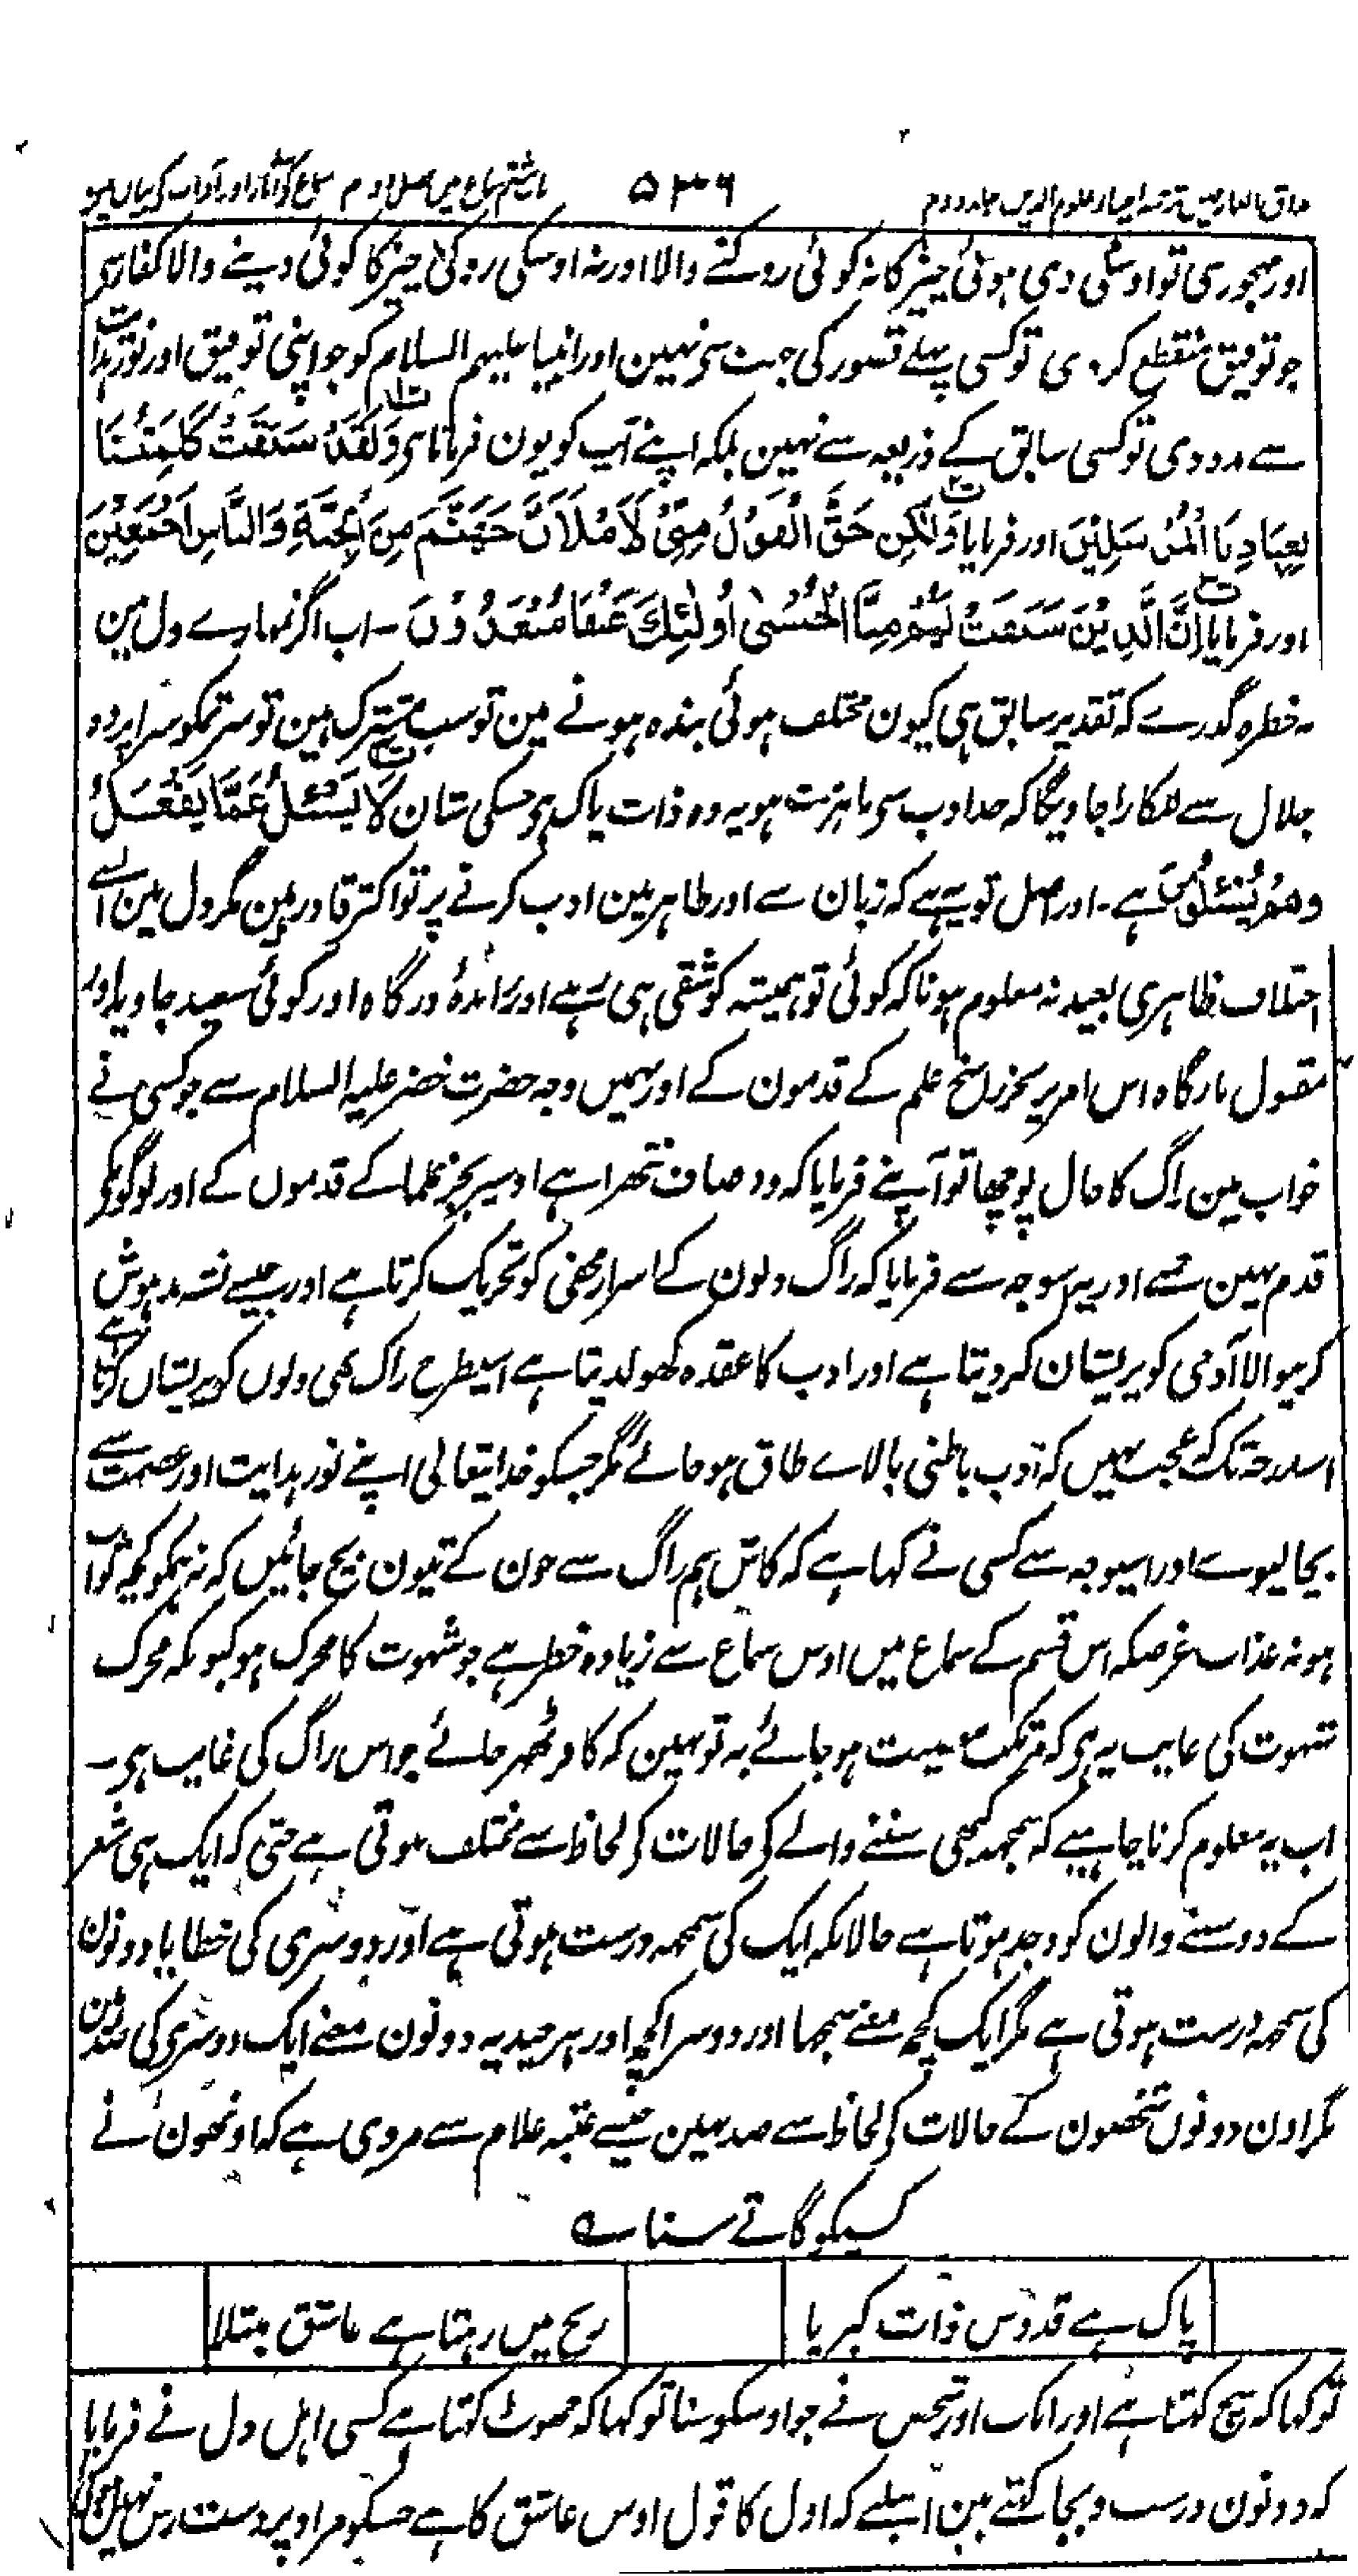 مذاق العارفین ترجمہ احیاء علوم الدین جلد دوم ۵۳۶ باب ہشتم سماع میں فصل دوم سماع کے آثار اور آداب کے بیان میں
اور مجبوری تو اوسکی دی ہوئی چیز کا نہ کوئی روکنے والا اور نہ اوسکی روکی چیز کا کوئی دینے والا کفار سے
جو توفیق منقطع کر دی تو کسی پہلے قصور کی جہت سے نہین اور انبیا علیہم السلام کو جو اپنی توفیق اور نور ہدایت
سے مدد دی تو کسی سابق کے ذریعہ سے نہین بلکہ اپنے آپ کو یون فرماتا ہی وَلَقَدْ سَبَقَتْ كَلِمَتُنَا
لِعِبَادِنَا الْمُرْسَلِيْنَ اور فرمایا وَلٰكِنْ حَقَّ الْقَوْلُ مِنِّيْ لَاَمْلَاَنَّ جَهَنَّمَ مِنَ الْجِنَّةِ وَالنَّاسِ اَجْمَعِيْنَ
اور فرمایا اِنَّ الَّذِيْنَ سَبَقَتْ لَهُمْ مِنَّا الْحُسْنٰى اُولٰٓئِكَ عَنْهَا مُبْعَدُوْنَ ۔ اب اگر تمہارے دل مین
یہ خطرہ گذرے کہ تقدیر سابق ہی کیون مختلف ہوئی بندہ ہونے مین تو سب مشترک ہین تو پھر تمکو سراپردہ
جلال سے للکارا جاویگا کہ حد ادب سے باہر مت ہو یہ وہ ذات پاک ہی جسکی شان لَا يُسْئَلُ عَمَّا يَفْعَلُ
وَهُمْ يُسْئَلُوْنَ ہے۔ اور اصل تو یہ ہے کہ زبان سے اور ظاہر مین ادب کرنے پر تو اکثر قادر ہین مگر دل مین ایسے
اختلاف ظاہری بعید نہ معلوم ہونا کہ کوئی تو ہمیشہ کو شقی ہی رہے اور راندۂ درگاہ اور کوئی سعید جاوید اور
مقبول بارگاہ اس امر پر بجز راسخ علم کے قدمون کے اور نہیں وجہ حضرت خضر علیہ السلام سے جو کسی نے
خواب مین راگ کا حال پوچھا تو آپنے فرمایا کہ وہ صاف ستھرا ہے اوسپر بجز علما کے قدموں کے اور لوگونکے
قدم نہین جمتے اور یہ اسوجہ سے فرمایا کہ راگ دلون کے اسرار مخفی کو تحریک کرتا ہے اور جیسے نشہ مدہوش
کرنیوالا آدمی کو پریشان کر دیتا ہے اور ادب کا عقدہ کھولدیتا ہے اسیطرح راگ بھی دلوں کو پریشان کرتا ہے
اسدرجہ تک کہ عجب نہیں کہ ادب باطنی بالاے طاق ہو جائے مگر جسکو خدایتعالی اپنے نور ہدایت اور عصمت سے
بچا لیوے اور اسیوجہ سے کسی نے کہا ہے کہ کاش ہم راگ سے جون کے تیون بچ جائیں کہ نہ ہمکو کچھ ثواب
ہو نہ عذاب غرضکہ اس قسم کے سماع میں اوس سماع سے زیادہ خطر ہے جو شہوت کا محرک ہو کیونکہ محرک
شہوت کی غایت یہ ہی کہ مرتکب معصیت ہو جائے یہ تو نہین کہ کافر ٹھہر جائے جو اس راگ کی غایت ہی۔
اب یہ معلوم کرنا چاہیے کہ سمجھ کبھی سننے والے کے حالات کے لحاظ سے مختلف ہوتی ہے حتی کہ ایک ہی شعر
کے دو سننے والون کو وجد ہوتا ہے حالانکہ ایک کی سمجھ درست ہوتی ہے اور دوسرے کی خطا یا دونون
کی سمجھ درست ہوتی ہے مگر ایک کچھ معنے سمجھا اور دوسرا کچھ اور ہر چند یہ دونون معنے ایک دوسرے کی ضد ہون
مگر اون دونوں شخصون کے حالات کے لحاظ سے ضد نہین جیسے عتبہ غلام سے مروی ہے کہ اونھون نے
کسیکو گاتے سنا ؎
پاک ہے قدوس ذات کبریا رنج میں رہتا ہے عاشق مبتلا
تو کہا کہ سچ کہتا ہے اور ایک اور شخص نے جو اوسکو سنا تو کہا کہ جھوٹ کہتا ہے کسی اہل دل نے فرمایا
کہ دونون درست و بجا کہتے ہین اسلیے کہ اول کا قول اوس عاشق کا ہے جسکو مراد پر دست رس نہین ہوئی